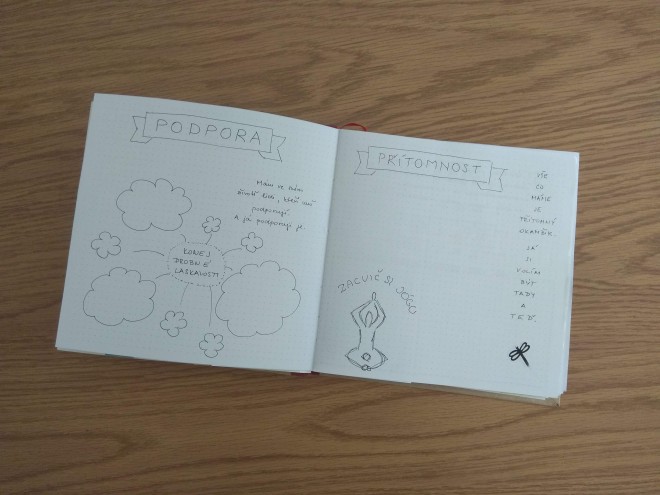 PODPORA
Mám ve svém
životě lidi, kteří mě
podporují.
A já podporuji je.
KONEJ
DROBNÉ
LASKAVOSTI
PŘÍTOMNOST
VŠE
CO
MÁME
JE
PŘÍTOMNÝ
OKAMŽIK.
JÁ
SI
VOLÍM
BÝT
TADY
A
TEĎ.
ZACVIČ SI JÓGU